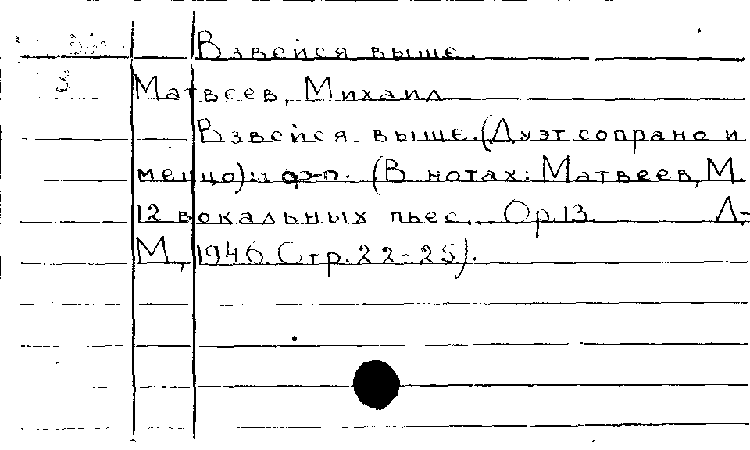 Взвейся выше.
Матвеев, Михаил
Взвейся выше. (Дуэт сопрано и
меццо) и ф-п. (В нотах: Матвеев, М.
12 вокальных пьес. Ор.13. Л-
М, 1946. Стр. 22-25).